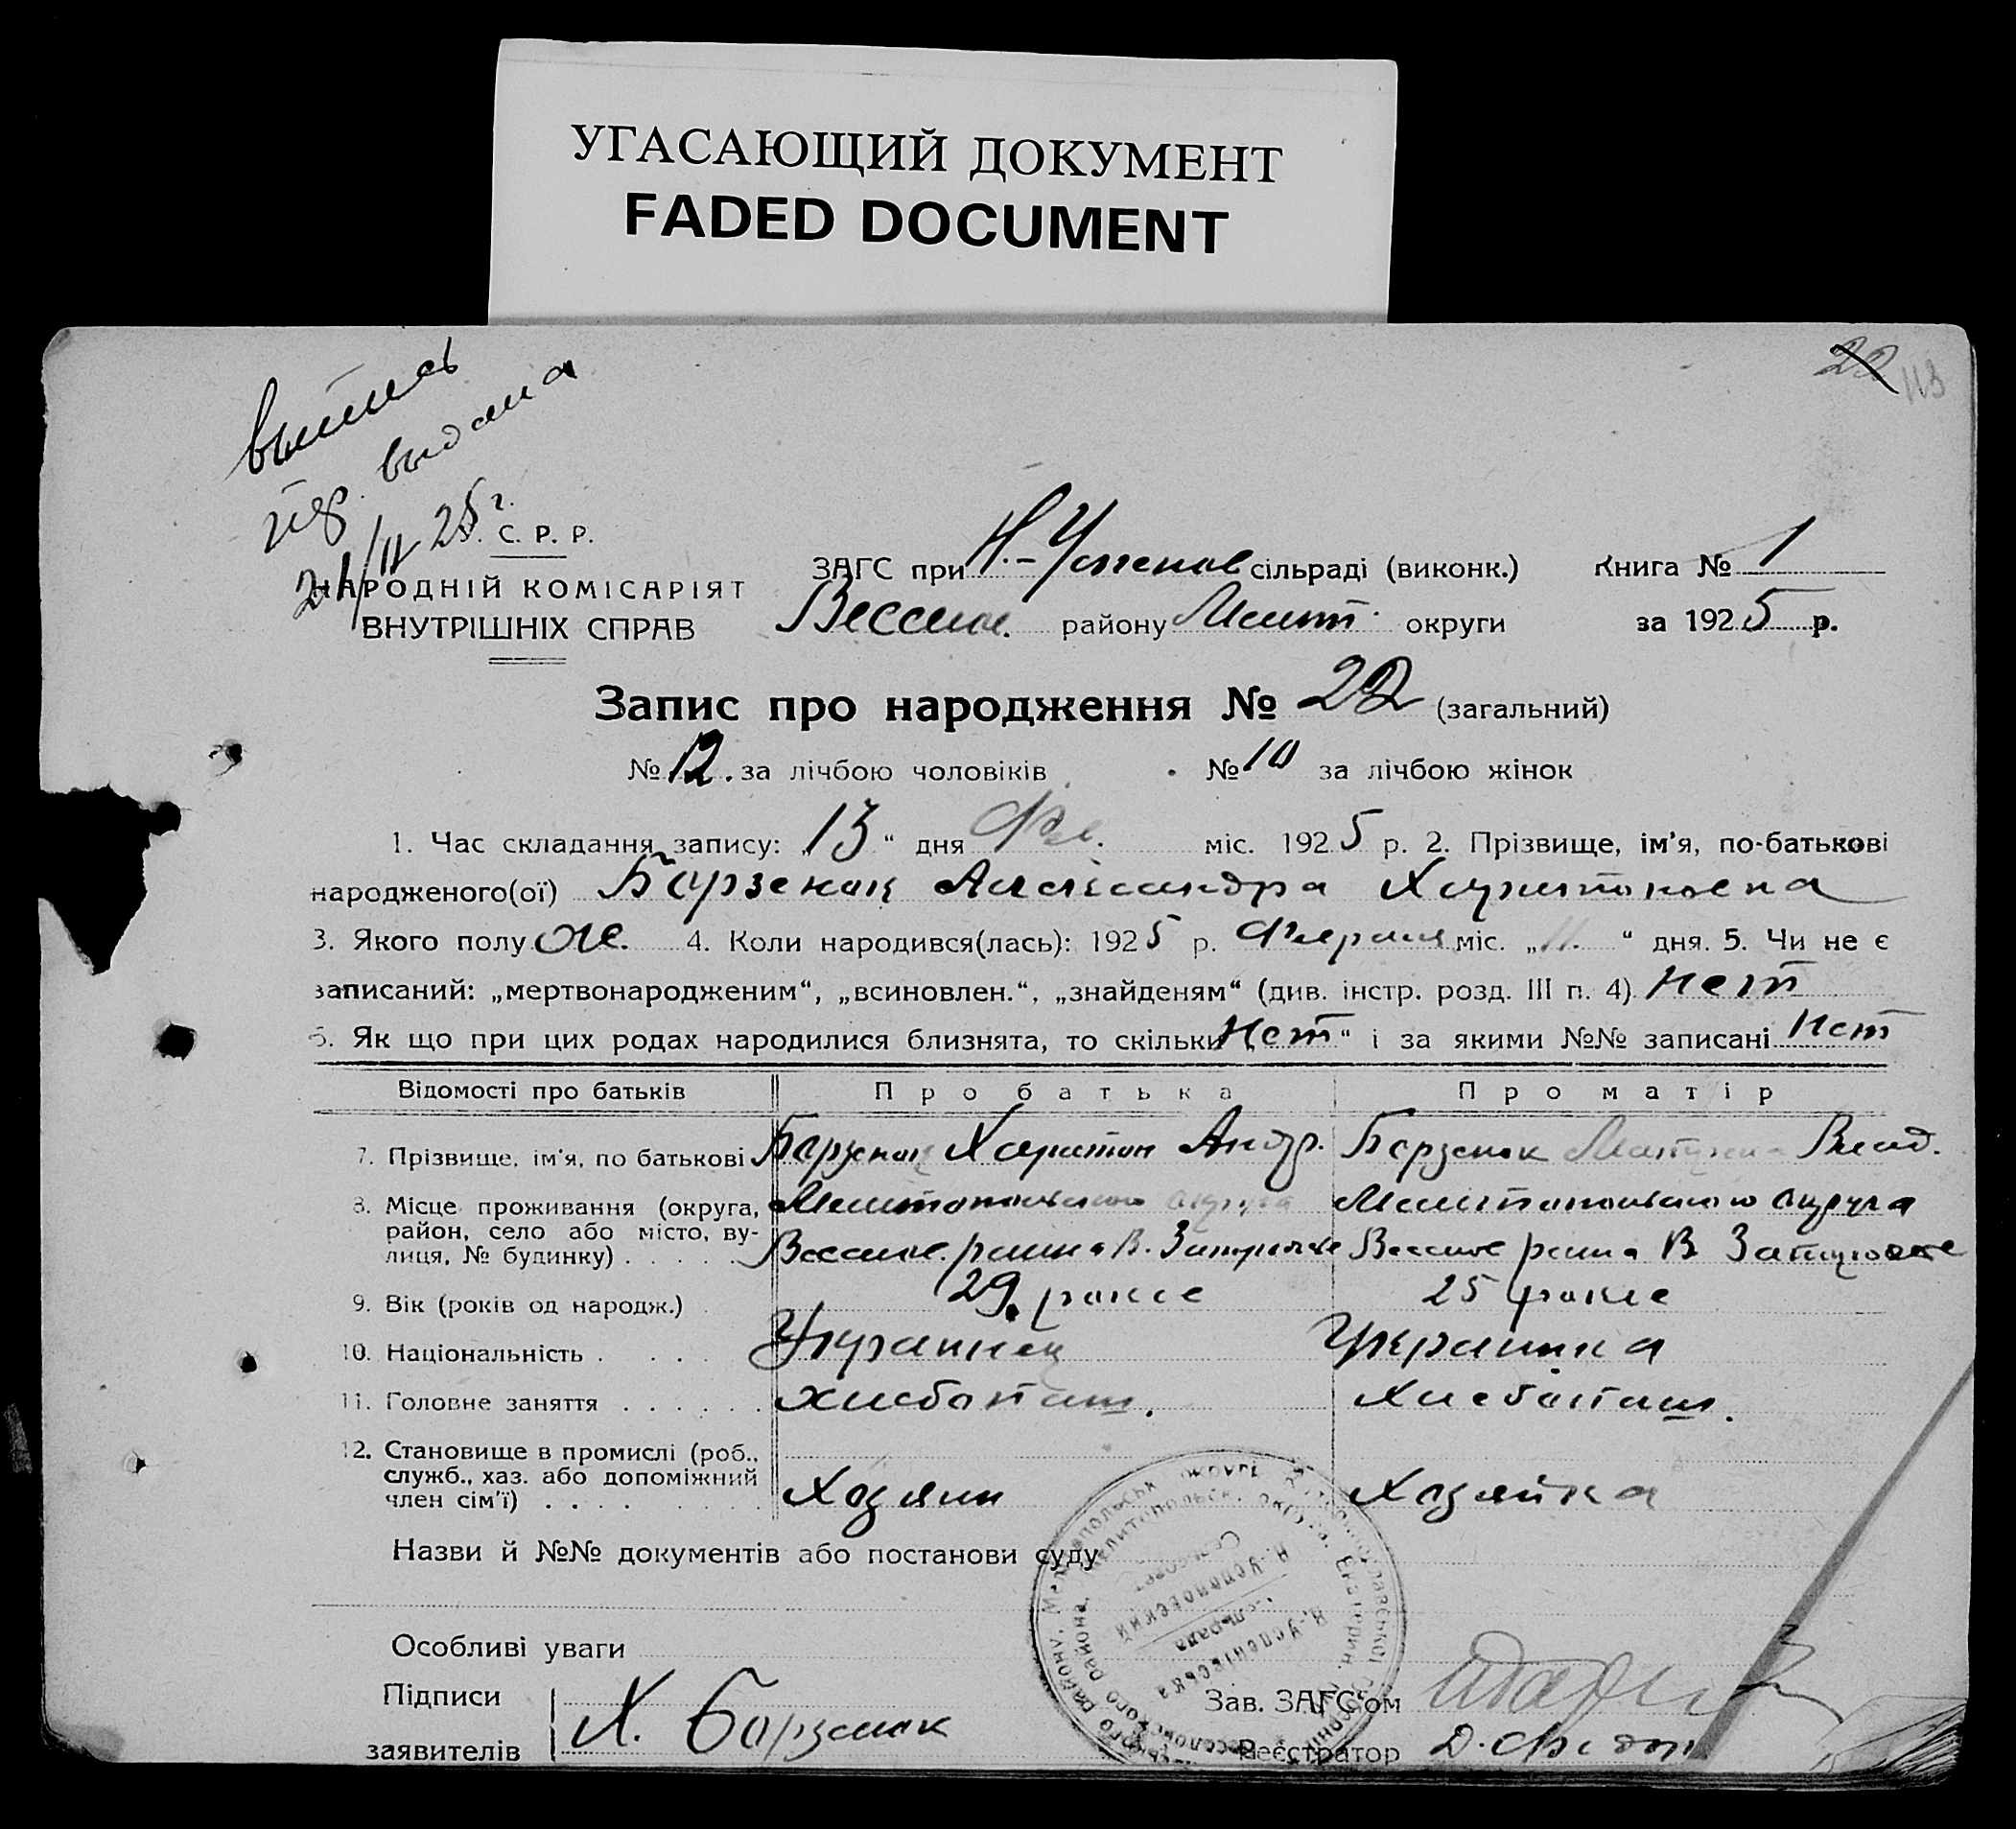 УГАСАЮЩИЙ ДОКУМЕНТ
FADED DOCUMENT
22 118
выпись
выдана
21/II 25 г.
С. Р. Р.
НАРОДНІЙ КОМІСАРІЯТ
ВНУТРІШНІХ СПРАВ
ЗАГС при Н.-Успенов сільраді (виконк.) Книга № 1
Весел. району Мелит. округи за 1925 р.
Запис про народження № 22 (загальний)
№ 12. за лічбою чоловіків № 10 за лічбою жінок
1. Час складання запису: „13“ дня Фев. міс. 1925 р. 2. Прізвище, ім’я, по-батькові
народженого(ої) Борзенок Александра Харитоновна
3. Якого полу же. 4. Коли народився(лась): 1925 р. Февраля міс. „11.“ дня. 5. Чи не є
записаний: „мертвонародженим“, „всиновлен.“, „знайденям“ (див. інстр. розд. III п. 4) Нет
6. Як що при цих родах народилися близнята, то скільки „Нет“ і за якими №№ записані Нет
Відомості про батьків Про батька Про матір
7. Прізвище, ім’я, по батькові Борзенок Харитон Андр. Борзенок Влад.
8. Місце проживання (округа, Мелитопольского округа Мелитопольского округа
район, село або місто, ву-
лиця, № будинку) . . . . . Весело. района В. Весело района В
9. Вік (років од народж.) 29. 25
10. Національність . . . . Украинец Украинка
11. Головне заняття . . . . . . хлебопаш. Хлебопаш.
12. Становище в промислі (роб.,
служб., хаз. або допоміжний
член сім’ї) . . . . Хозяин Хозяйка
Назви й №№ документів або постанови суду
Особливі уваги
Н.-Успеновский
Сельсовет
Н.-Успенівська
сільрада
Підписи
заявителів Х. Борзенок
Зав. ЗАГС’ом
Реєстратор Д.